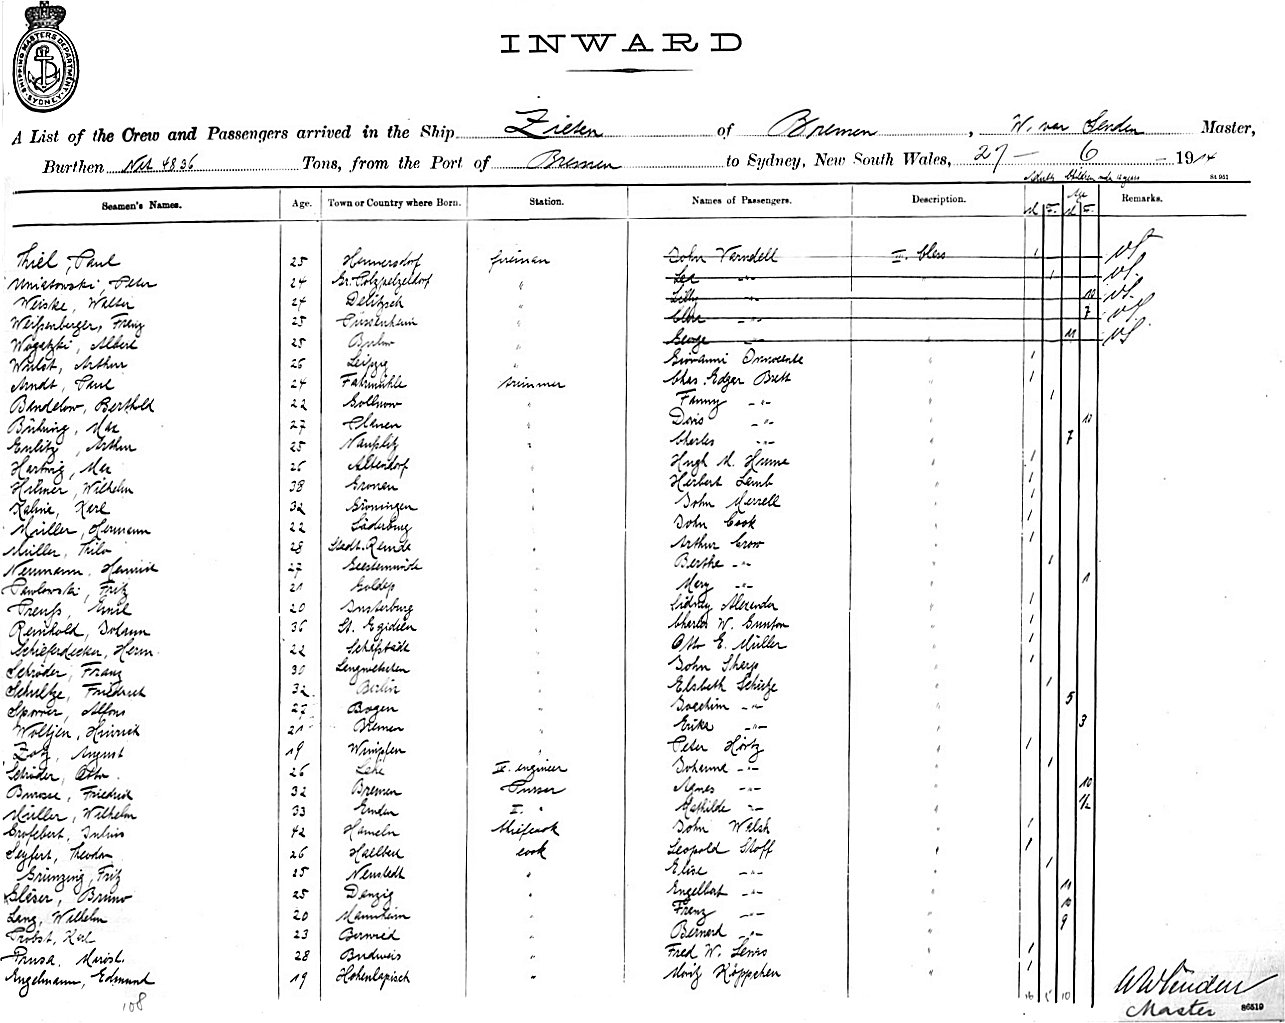 SHIPPING MASTERS DEPARTMENT · SYDNEY ·
INWARD
A List of the Crew and Passengers arrived in the Ship Zieten of Bremen, W. von Senden Master,
Burthen Net 4836 Tons, from the Port of Bremen to Sydney, New South Wales, 27 – 6 – 1914
Adults Children under 12 years
St 951
Seamen's Names. Age. Town or Country where Born. Station. Names of Passengers. Description. M F. Age M F. Remarks.
Thiel, Paul 25 Hennersdorf fireman John Varndell II. class 1
Uniatowski, Peter 24 " 1
Weiske, Walter 24 Delitzsch " Lilly "
Weissenberger, Franz 25 " 7
Wogatzki, Albert 25 " George " 11
Wulst, Arthur 26 Leipzig " Giovanni Innocente " 1
Arndt, Paul 24 Fahrmühle trimmer Chas. Edgar Brett " 1
Bandelow, Berthold 22 Gollnow " Fanny " 1
Bühring, Max 27 " Doris " "
Arthur 25 " Charles " " 7
Hartwig, Max 26 Altendorf " Hugh M. Hume " 1
Hilmer, Wilhelm 38 Gronau " Herbert Lamb " 1
Karl 32 Gröningen " John Merrell " 1
Müller, Hermann 22 " John Cook " 1
Müller, Thilo 28 Stadt Remda " Arthur Crow " 1
Neumann, Heinrich 27 Geestemünde " Bertha " " 1
Pawlowski, Fritz 21 Goldap " Mary " " 1
Preuss, Emil 20 Insterburg " Sidney Alexander " 1
Reinhold, Johann 36 St. Egidien " Charles W. Gunton " 1
Schieferdecker, Herm. 22 Schafstädt " Otto E. Müller " 1
Schröder, Franz 30 Lengwethen " John Sharp " 1
Schultze, Friedrich 32 Berlin " Elsbeth Schütze " 1
Alfons 27 Bogen " Joachim " " 5
Woltjen, Hinrich 21 Bremen " Erika " " 3
Zotz, August 19 Wimpfen " Peter Hörtz " 1
Schröder, Otto 26 Lehe II. engineer Johanna " " 1
Friedrich 32 Bremen Purser Agnes " " 10
Müller, Wilhelm 33 Emden II. " Mathilde " " 1/2
Julius 42 Hameln Chiefcook John Walsh " 1
Seyfert, Theodor 26 cook Leopold Stoff " 1
Grünzing, Fritz 25 Neustadt " Elise " " 1
Gläser, Bruno 25 Danzig " Engelbert " " 11
Lang, Wilhelm 20 Mannheim " Franz " " 10
Probst, Karl 23 Bernried " Bernard " " 9
Prusa, 28 Budweis " Fred W. Lewis " 1
Engelmann, Edmund 19 " Moritz Köppchen " 1
108
W v Senden
Master
86519